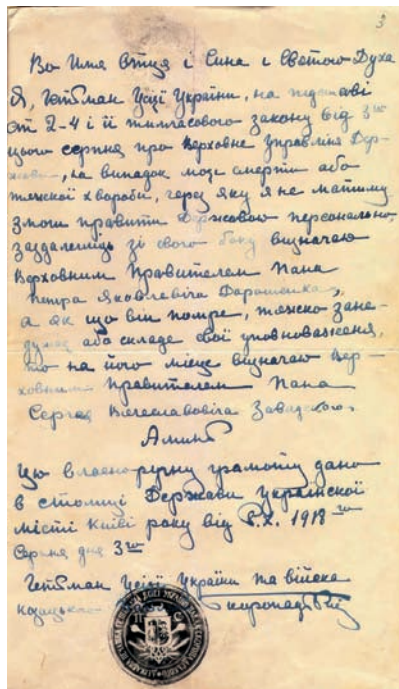 3
Во Имя Отця і Сина і Святого Духа
Я, Гетьман Усієї України, на підставі
ст 2-4 і її тимчасового закону від 3го
цього серпня про Верховне Управління Дер-
жави, на випадок моєї смерти або
тяжкої хвороби, через яку я не матиму
змоги правити Державою персонально,
заздалегідь зі свого боку визначаю
Верховним Правителем Пана
Петра Яковлевіча Дорошенка,
а як що він помре, тяжко зане-
дужає або складе свої уповноваження,
то на його місце визначаю Вер-
ховним Правителем Пана
Сергея Вячеславовіча Завадского.
Аминь
Цю власноручну грамоту дано
в столиці Держави Української
місті Київі року від Р.Х. 1918го
Серпня дня 3го
Гетьман Усієї України та війська
козацького Скоропадський